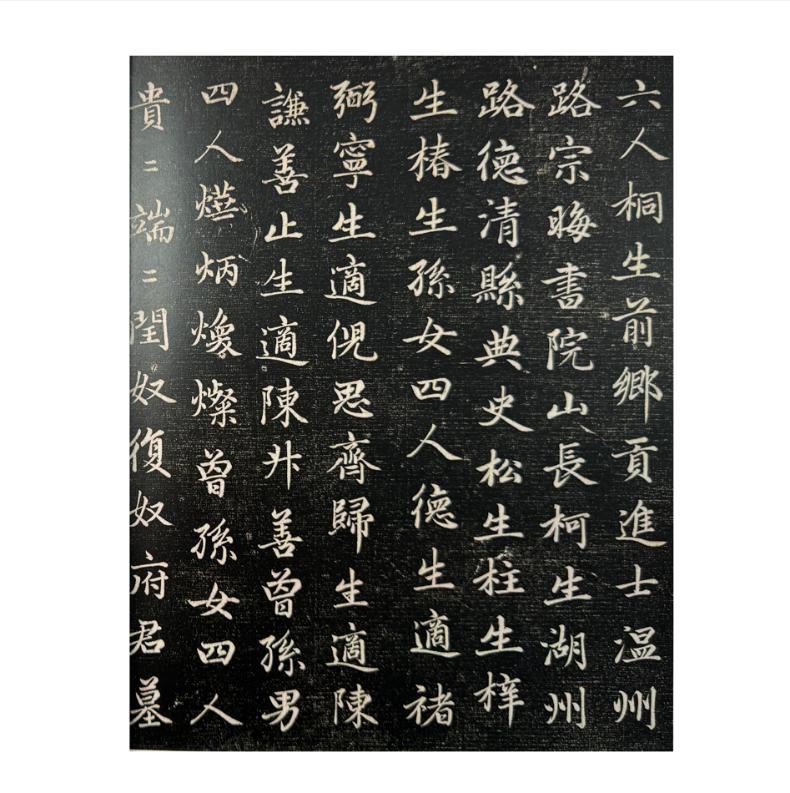 六人桐生前鄉貢進士温州
路宗晦書院山長柯生湖州
路德清縣典史松生柱生梓
生椿生孫女四人德生適褚
弼寧生適倪思齊歸生適陳
謙善止生適陳北善曾孫男
四人燕炳煥燦曾孫女四人
貴二端二閏奴復奴府君墓